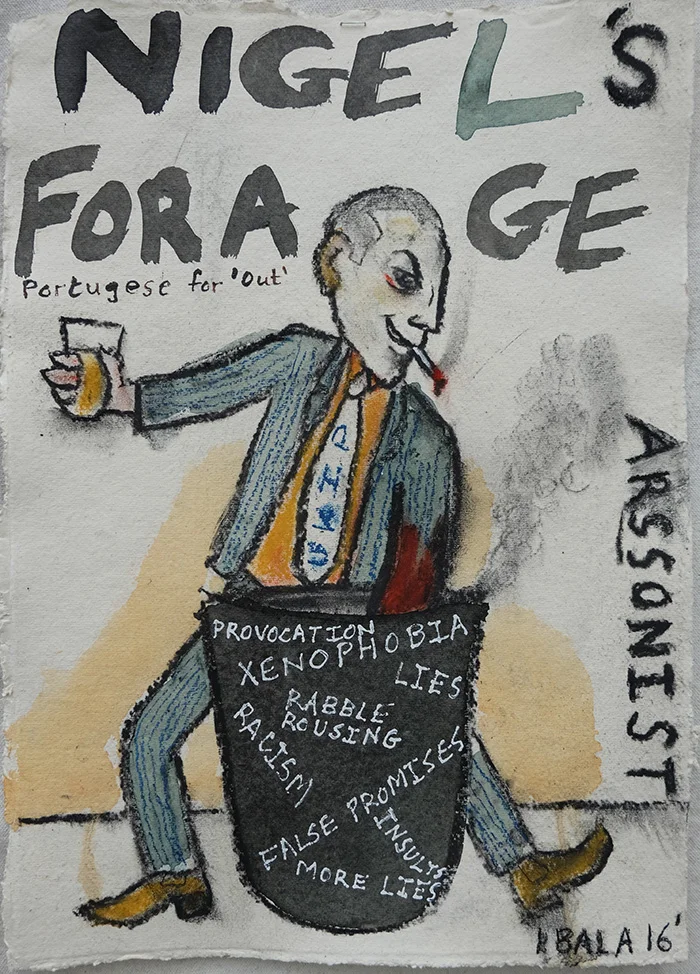 NIGEL'S
FORA GE
Portugese for 'Out'
ARSSONIST
PROVOCATION
XENOPHOBIA
LIES
RABBLE
ROUSING
RACISM
FALSE PROMISES
INSULTS
MORE LIES
BALA 16'